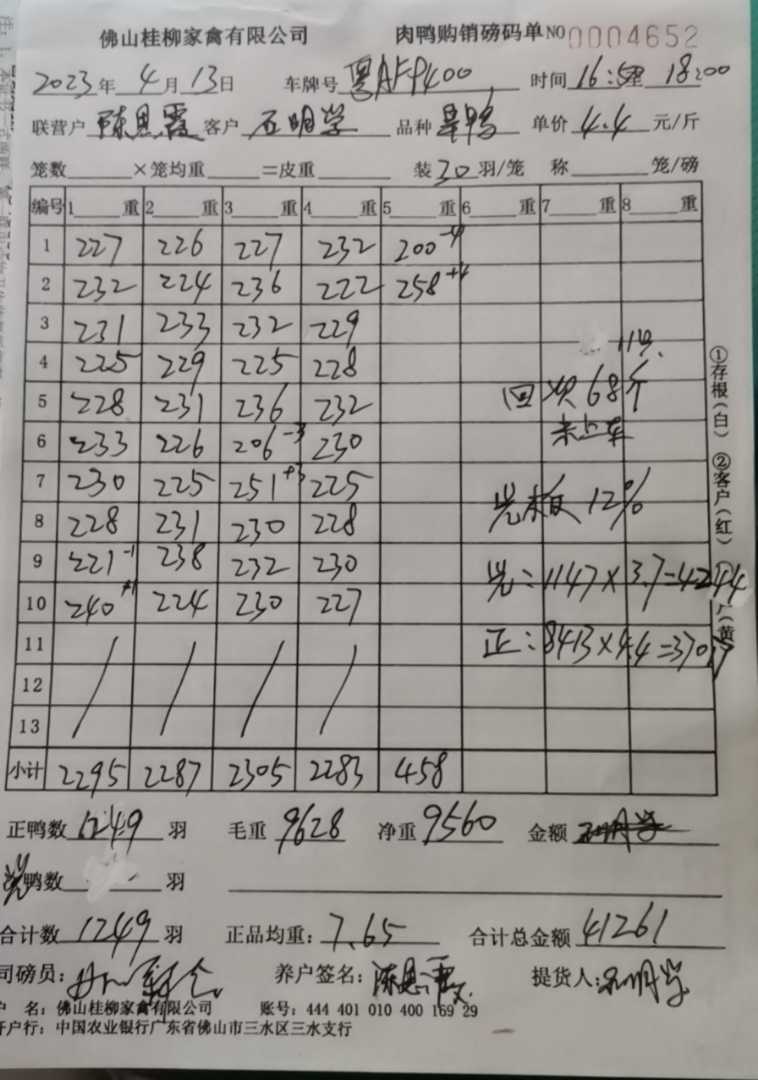 佛山桂柳家禽有限公司 肉鸭购销磅码单 NO 0004652
2023年4月13日 车牌号 粤AFP400 时间 16:5 至 18:00
联营户 陈思霞 客户 石明学 品种 单价 4.4 元/斤
笼数 ×笼均重 =皮重 装 30 羽/笼 称 笼/磅
编号 1 重 2 重 3 重 4 重 5 重 6 重 7 重 8 重
1 227 226 227 232 200 -4
2 232 224 236 222 258 +4
3 231 233 232 229
4 225 229 225 228 11只.
5 228 231 236 232 回收68个
6 233 226 206 -3 230 未上车
7 230 225 251 +3 225 光板12%
8 228 231 230 228
9 221 -1 238 232 230 光:1147×3.7=4244
10 240 +1 224 230 227
11 正:8413×4.4=37017
12
13
小计 2295 2287 2305 2283 458
①存根(白) ②客户(红) (黄
正鸭数 1249 羽 毛重 9628 净重 9560 金额
光鸭数 羽
合计数 1249 羽 正品均重: 7.65 合计总金额 41261
司磅员: 养户签名: 陈思霞 提货人: 石明学
户 名: 佛山桂柳家禽有限公司 账号: 444 401 010 400 169 29
开户行: 中国农业银行广东省佛山市三水区三水支行